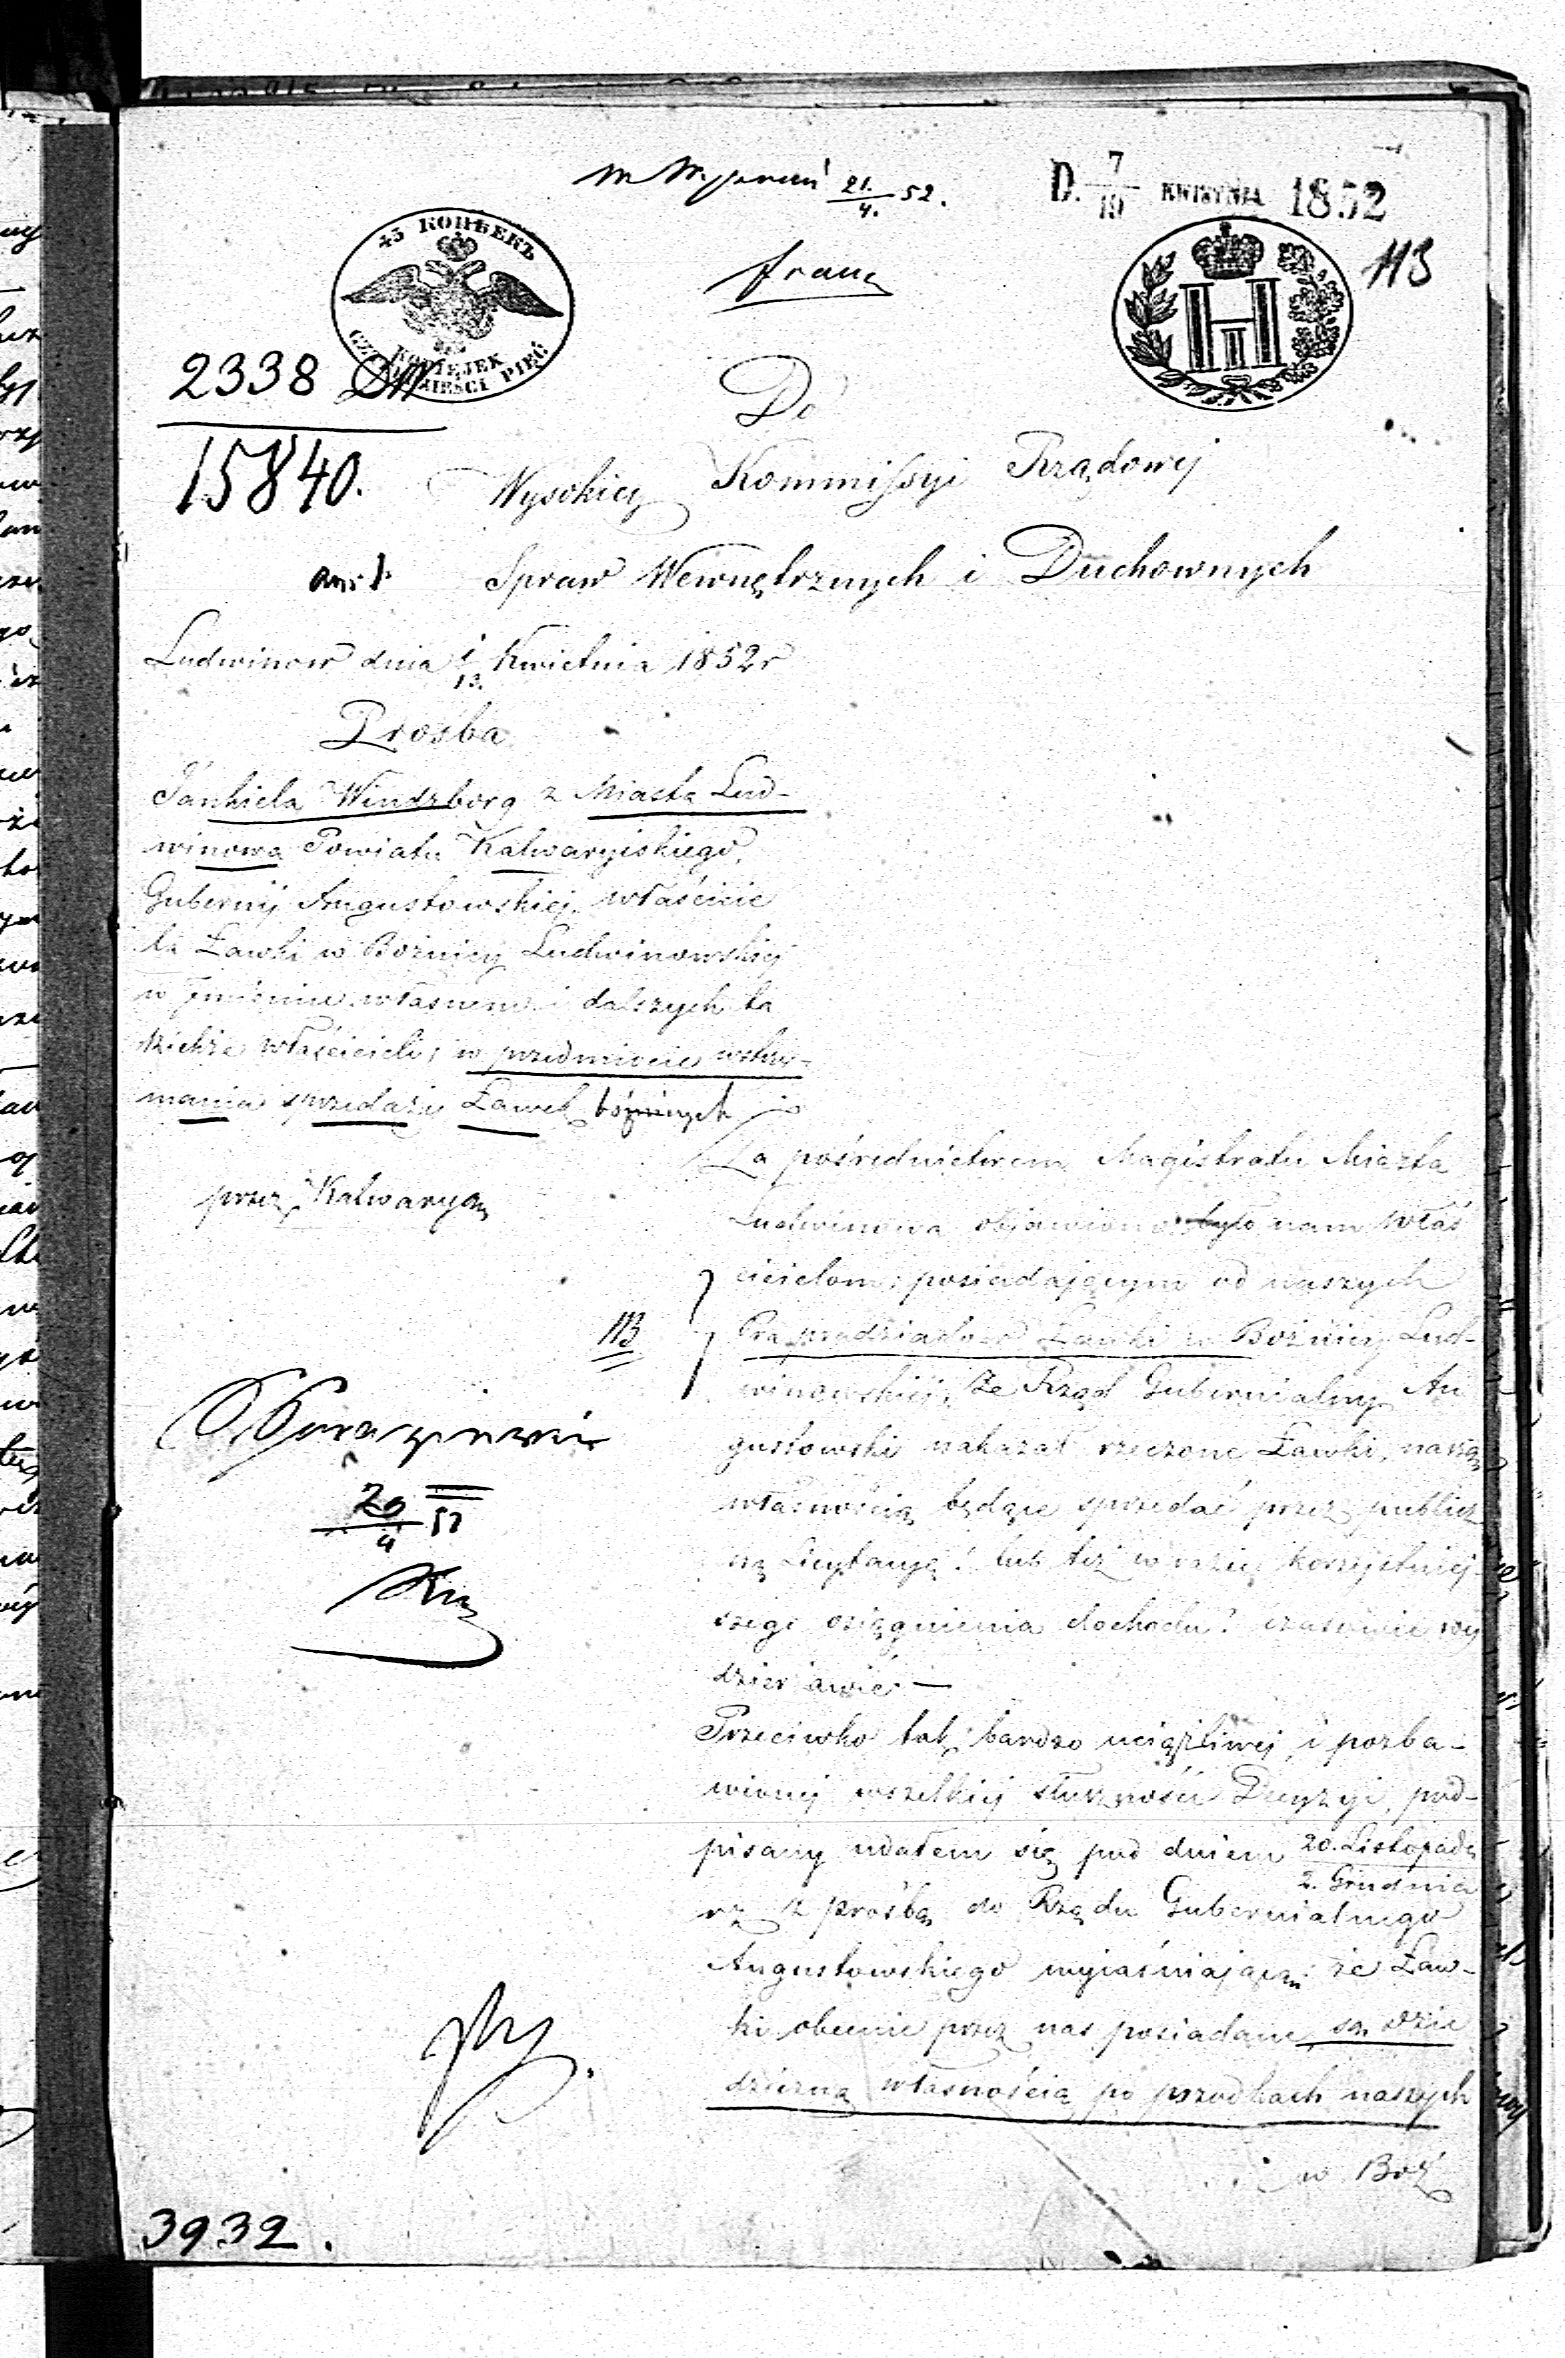 21./4. 52.
D. 7/19 KWIETNIA 1852
113
45 КОПѢЕКЪ
KOPIEJEK
CZTERDZIEŚCI PIĘĆ
franc
2338
15840.
Do
Wysokiey Kommissyi Rządowej
Spraw Wewnętrznych i Duchownych
Ludwinow dnia 1/13. Kwietnia 1852 r
Prosba
Jankiela Windzborg z Miasta Lud-
winowa Powiatu Kalwaryiskiego,
Gubernij Augustowskiej, właścicie
la Ławki w Bożnicy Ludwinowskiej
w imieniu własnem i dalszych ta
kichże właścicieli, w przedmiocie wstrzy-
mania sprzedaży Ławek bóżniczych
przez Kalwaryą
Za pośrednictwem Magistratu Miasta
Ludwinowa objawiono było nam właś
cicielom, posiadającym od naszych
Prapradziadow Ławki w Bożnicy Lud-
winowskiej, że Rząd Gubernialny Au
gustowski nakazał rzeczone Ławki, naszą
własnością będące sprzedać przez publicz
ną Licytacyą! lub też w razie korzystniej
szego osiągnienia dochodu! czasowie wy
dzierżawić —
Przeciwko tak bardzo uciążliwej, i pozba-
wionej wszelkiej słuszności Decyzyi, pod-
pisany udałem się pod dniem 20. Listopada
2. Grudnia
rz z prośbą do Rządu Gubernialnego
Augustowskiego wyjaśniającą że Ław-
ki obecnie przez nas posiadane, są dzie
dziczną własnością po przodkach naszych
w Boż
113
20/4 52
3932.